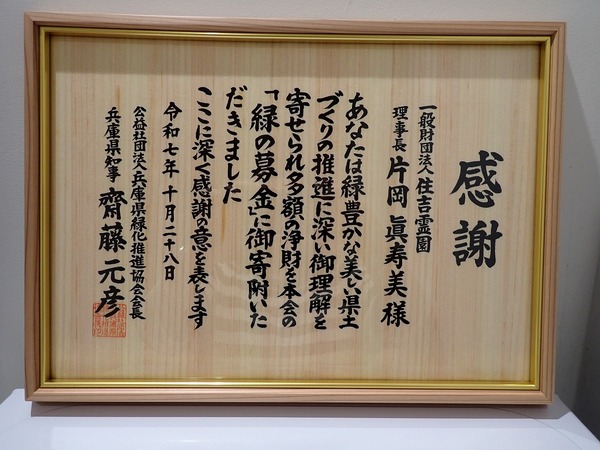 感謝
一般財団法人 住吉霊園
理事長 片岡 眞寿美 様
あなたは緑豊かな美しい県土
づくりの推進に深い御理解を
寄せられ多額の浄財を本会の
「緑の募金」に御寄附いた
だきました
ここに深く感謝の意を表します
令和七年十月二十八日
公益社団法人兵庫県緑化推進協会会長
兵庫県知事 齋藤 元彦